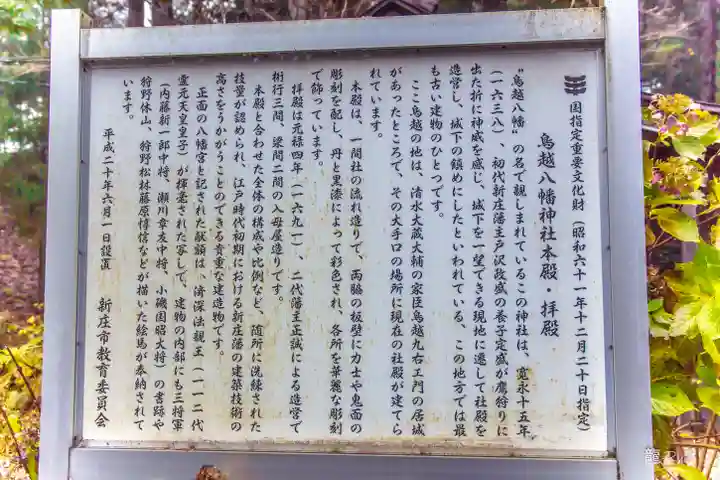 国指定重要文化財（昭和六十一年十二月二十日指定）
鳥越八幡神社本殿・拝殿
“鳥越八幡”の名で親しまれているこの神社は、寛永十五年
（一六三八）、初代新庄藩主戸沢政盛の養子定盛が鷹狩りに
出た折に神威を感じ、城下を一望できる現地に遷して社殿を
造営し、城下の鎮めにしたといわれている、この地方では最
も古い建物のひとつです。
ここ鳥越の地は、清水大蔵大輔の家臣鳥越九右エ門の居城
があったところで、その大手口の場所に現在の社殿が建てら
れています。
本殿は、一間社の流れ造りで、両脇の板壁に力士や鬼面の
彫刻を配し、丹と黒漆によって彩色され、各所を華麗な彫刻
で飾っています。
拝殿は元禄四年（一六九一）、二代藩主正誠による造営で
桁行三間、梁間二間の入母屋造りです。
本殿と合わせた全体の構成や比例など、随所に洗練された
技量が認められ、江戸時代初期における新庄藩の建築技術の
高さをうかがうことのできる貴重な建造物です。
正面の八幡宮と記された献額は、済深法親王（一一二代
霊元天皇皇子）が揮毫された写しで、建物の内部にも三将軍
（内藤新一郎中将、瀬川章友中将、小磯国昭大将）の書跡や
狩野休山、狩野松林藤原惇信などが描いた絵馬が奉納されて
います。
平成二十年六月一日設置　新庄市教育委員会